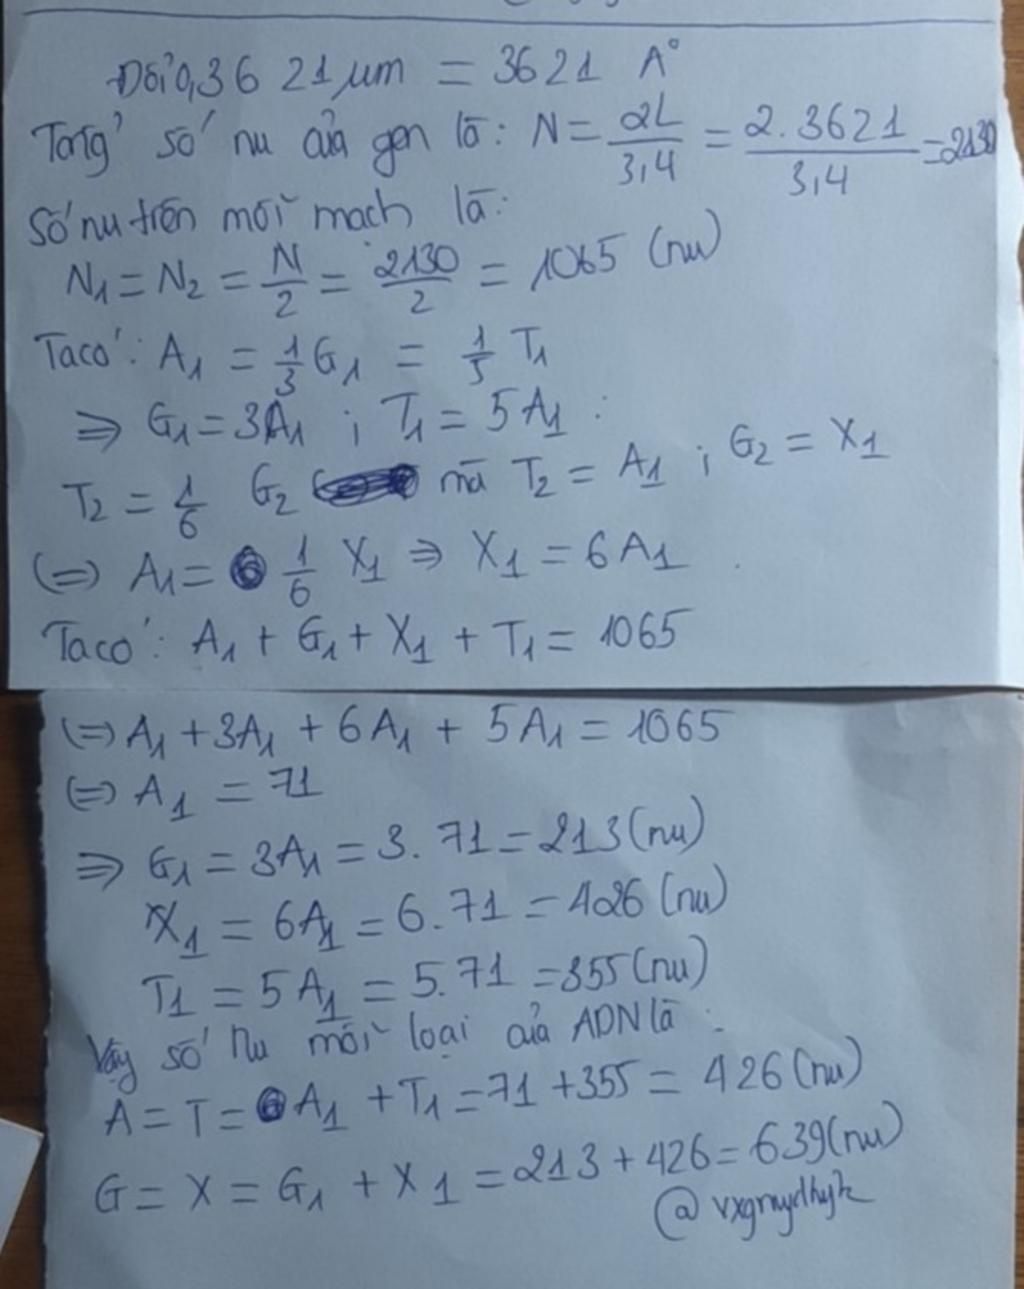 Đổi 0,3621 µm = 3621 A°
Tổng số nu của gen là: N = 2L/3,4 = 2.3621/3,4 = 2130
Số nu trên mỗi mạch là:
N1 = N2 = N/2 = 2130/2 = 1065 (nu)
Ta có: A1 = 1/3 G1 = 1/5 T1
⇒ G1 = 3A1 ; T1 = 5A1 :
T2 = 1/6 G2 mà T2 = A1 ; G2 = X1
(=) A1 = 1/6 X1 ⇒ X1 = 6A1
Ta có: A1 + G1 + X1 + T1 = 1065
(=) A1 + 3A1 + 6A1 + 5A1 = 1065
(=) A1 = 71
⇒ G1 = 3A1 = 3.71 = 213 (nu)
X1 = 6A1 = 6.71 = 426 (nu)
T1 = 5A1 = 5.71 = 355 (nu)
Vậy số Nu mỗi loại của ADN là :
A = T = A1 + T1 = 71 + 355 = 426 (nu)
G = X = G1 + X1 = 213 + 426 = 639 (nu)